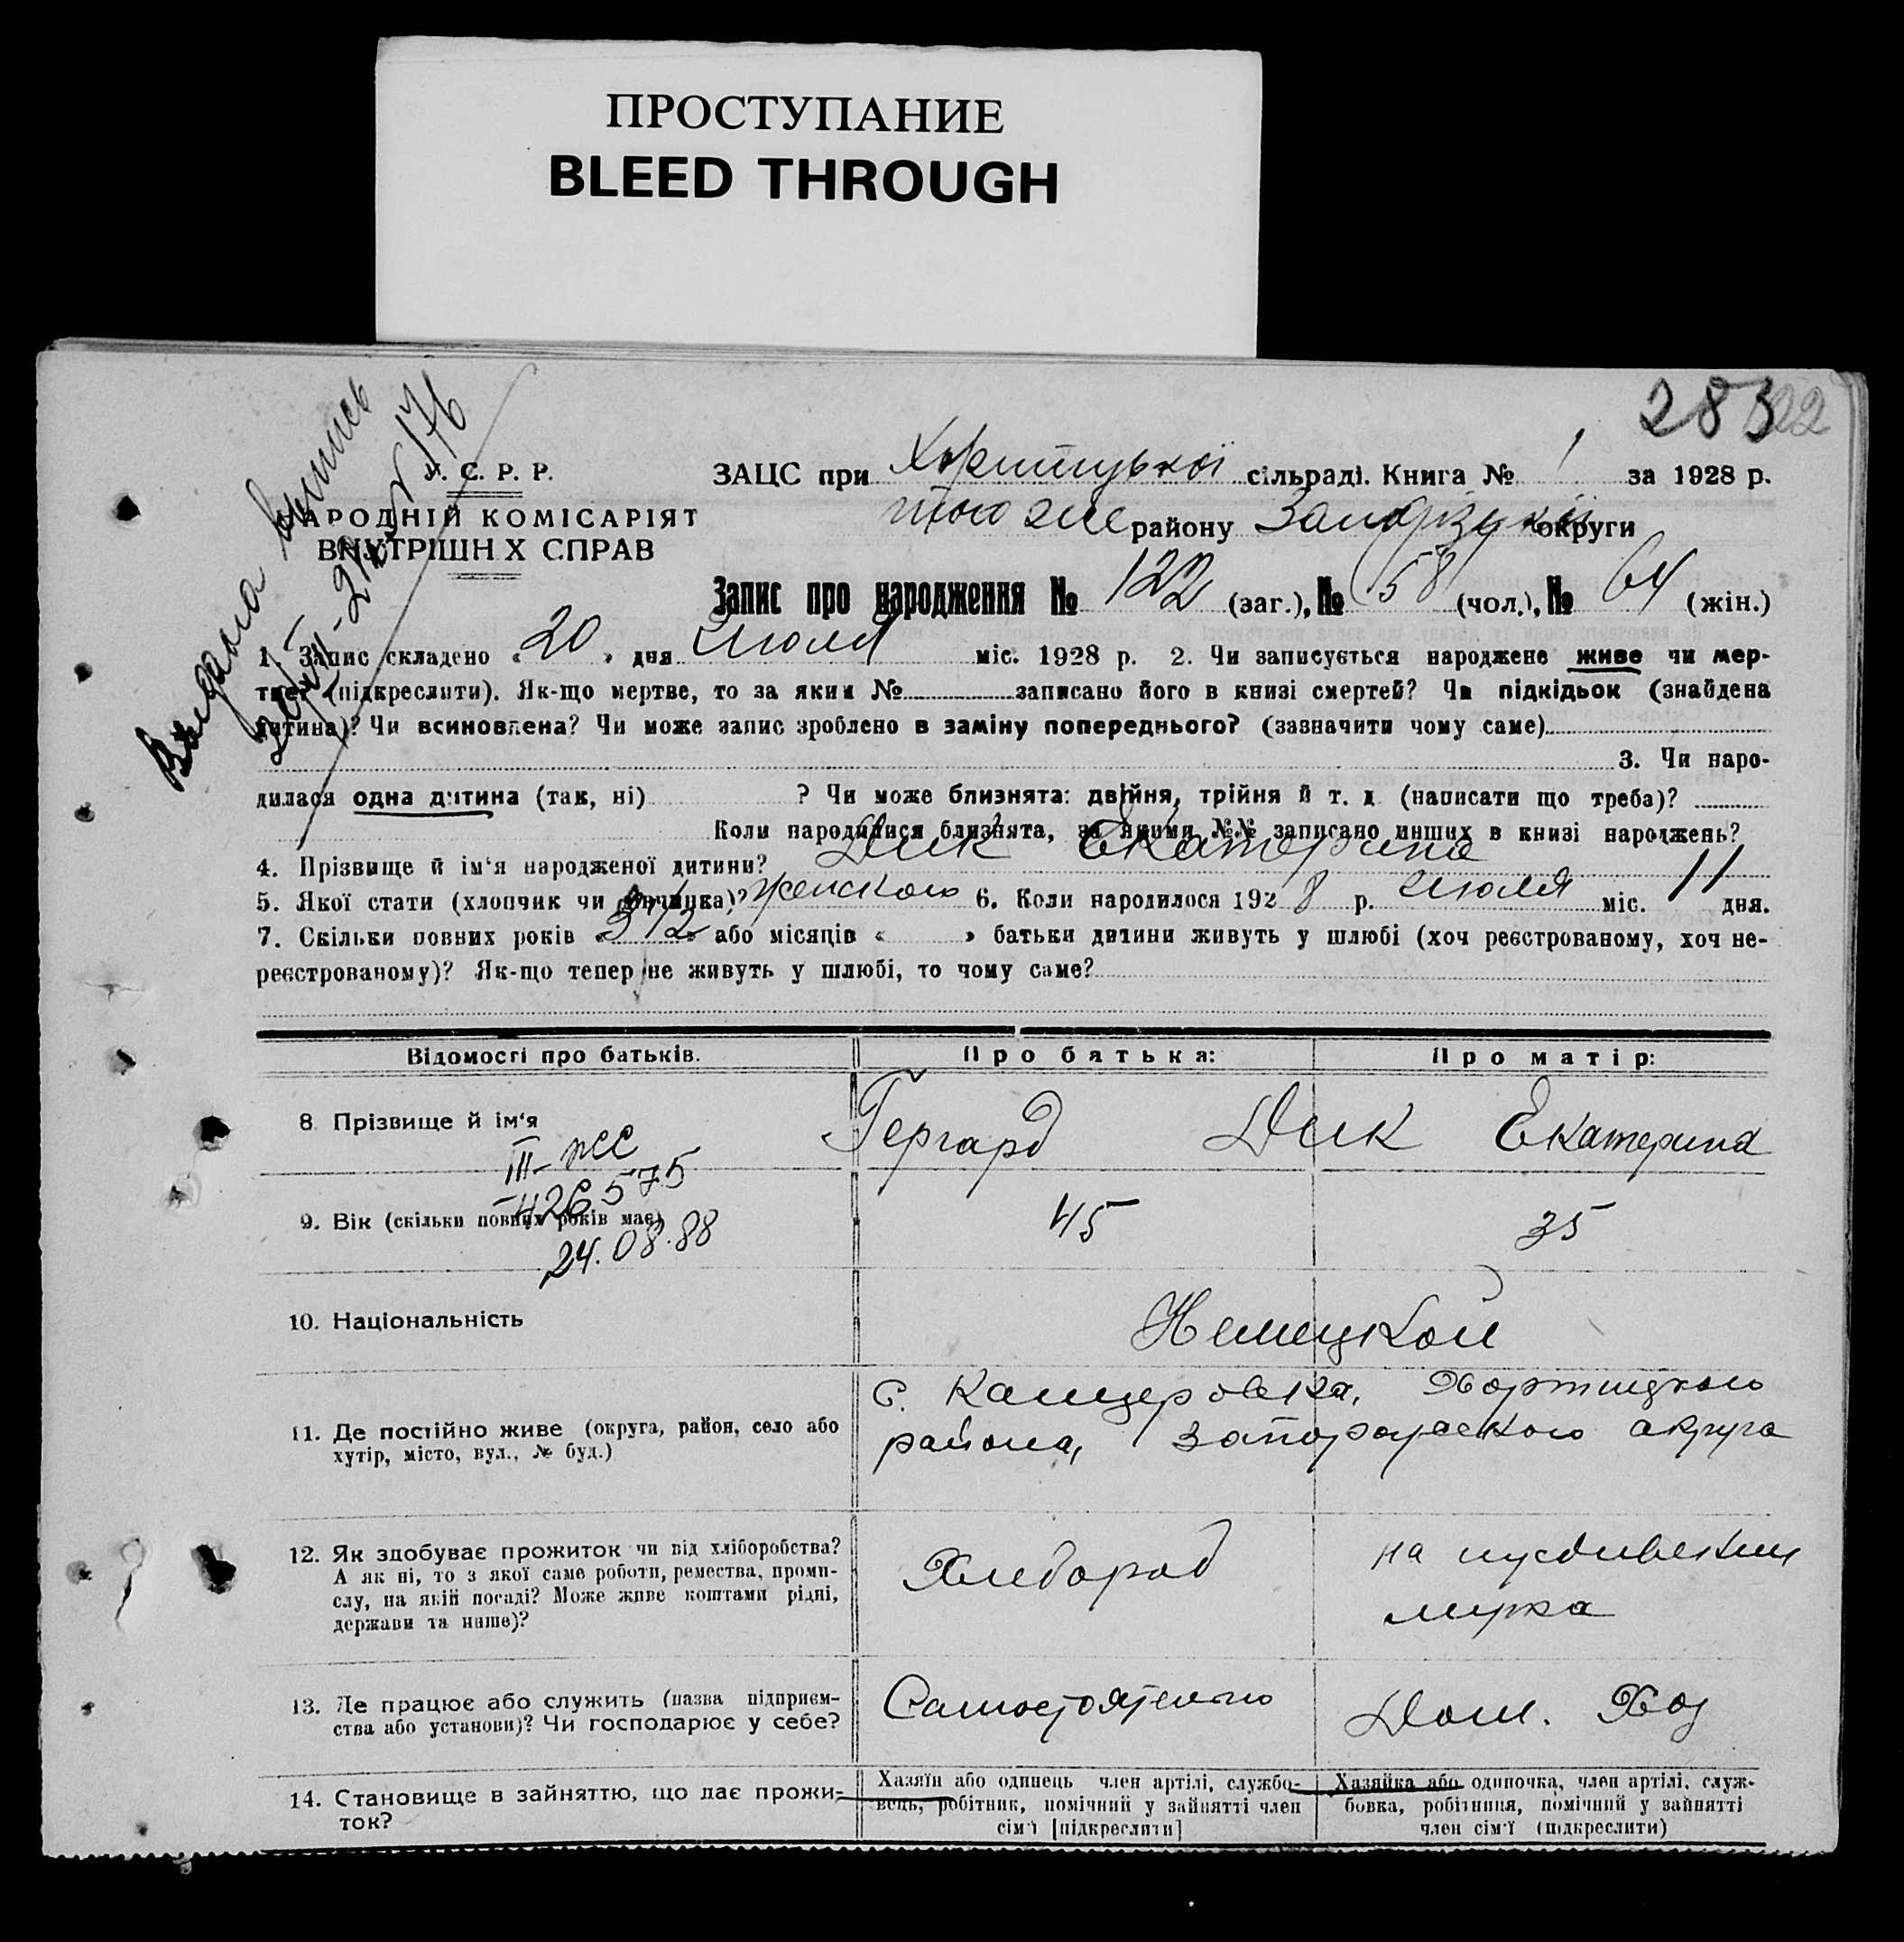 ПРОСТУПАНИЕ
BLEED THROUGH
283 22
Видана випись
У. С. Р. Р.
НАРОДНІЙ КОМІСАРІЯТ
ВНУТРІШН Х СПРАВ
ЗАЦС при Хортицької сільраді. Книга № 1 за 1928 р.
того же району округи
Запис про народження № 122 (заг.), № 58 (чол.), № 64 (жін.)
1. Запис складено « 20 » дня Июля міс. 1928 р. 2. Чи записується народжене живе чи мер-
тве (підкреслити). Як-що мертве, то за яким № записано його в книзі смертей? Чи підкідьок (знайдена
дитина)? Чи всиновлена? Чи може запис зроблено в заміну попереднього? (зазначити чому саме)
3. Чи наро-
дилася одна дитина (так, ні) ? Чи може близнята: двійня, трійня й т. д (написати що треба)?
Коли народилися близнята, за якими №№ записано инших в книзі народжень?
4. Прізвище й ім'я народженої дитини? Дик Екатерина
5. Якої стати (хлопчик чи дівчинка)? женского 6. Коли народилося 1928 р. июля міс. 11 дня.
7. Скільки повних років « » або місяців « » батьки дитини живуть у шлюбі (хоч реєстрованому, хоч не-
реєстрованому)? Як-що тепер не живуть у шлюбі, то чому саме?
Відомості про батьків. Про батька: Про матір:
8 Прізвище й ім'я Гергард Дик Екатерина
III-ЖС
426575
9. Вік (скільки повних років має) 45 35
24.08.88
10. Національність Немецкой
11. Де постійно живе (округа, район, село або хутір, місто, вул., № буд.)
с. Канцеровка, Хортицкого
района, Запорожского округа
12. Як здобуває прожиток чи від хліборобства?
А як ні, то з якої саме роботи, ремества, проми-
слу, на якій посаді? Може живе коштами рідні,
держави та инше)?
Хлебороб
на иждивении
мужа
13. Де працює або служить (назва підприєм-
ства або установи)? Чи господарює у себе?
Самостоятельно Дом. Хоз
14. Становище в зайняттю, що дає прожи-
ток?
Хазяїн або одинець член артілі, службо-
вець, робітник, помічний у зайнятті член
сім'ї [підкреслити]
Хазяйка або одиночка, член артілі, служ-
бовка, робітниця, помічний у зайнятті
член сім'ї (підкреслити)